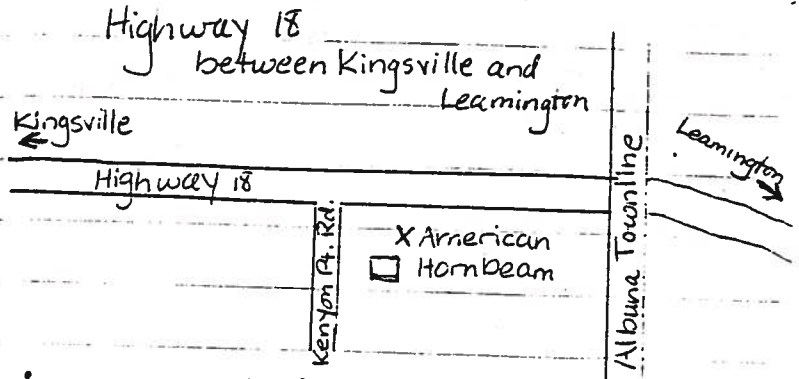 Highway 18
between Kingsville and
Leamington
Kingsville
Leamington
Highway 18
Kenyon Pt. Rd.
X American
Hornbeam
Albuna Townline